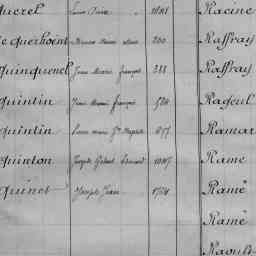 Querel Louis Désiré 1081 Racine
de Querhoënt 200 Raffray
Quinquenel Jean Marie François 288 Raffray
Quintin Jean Marie François 524 Rageul
Quintin Louis Marie Jn Baptiste 877 Ramar
Quinton Joseph Gabriel 1047 Rame
Quinet Joseph Jean 1724 Ramé
Ramé
Raoult